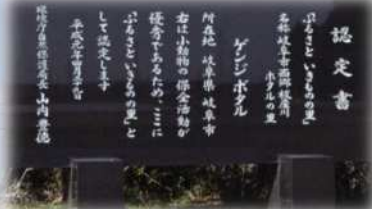 認定書
「ふるさといきものの里」
名称 岐阜市西郷板屋川
ホタルの里
ゲンジボタル
所在地 岐阜県 岐阜市
右は小動物の保全活動が
優秀であるため、ここに
「ふるさといきものの里」と
して認定します
平成元年
環境庁自然保護局長 山内豊徳